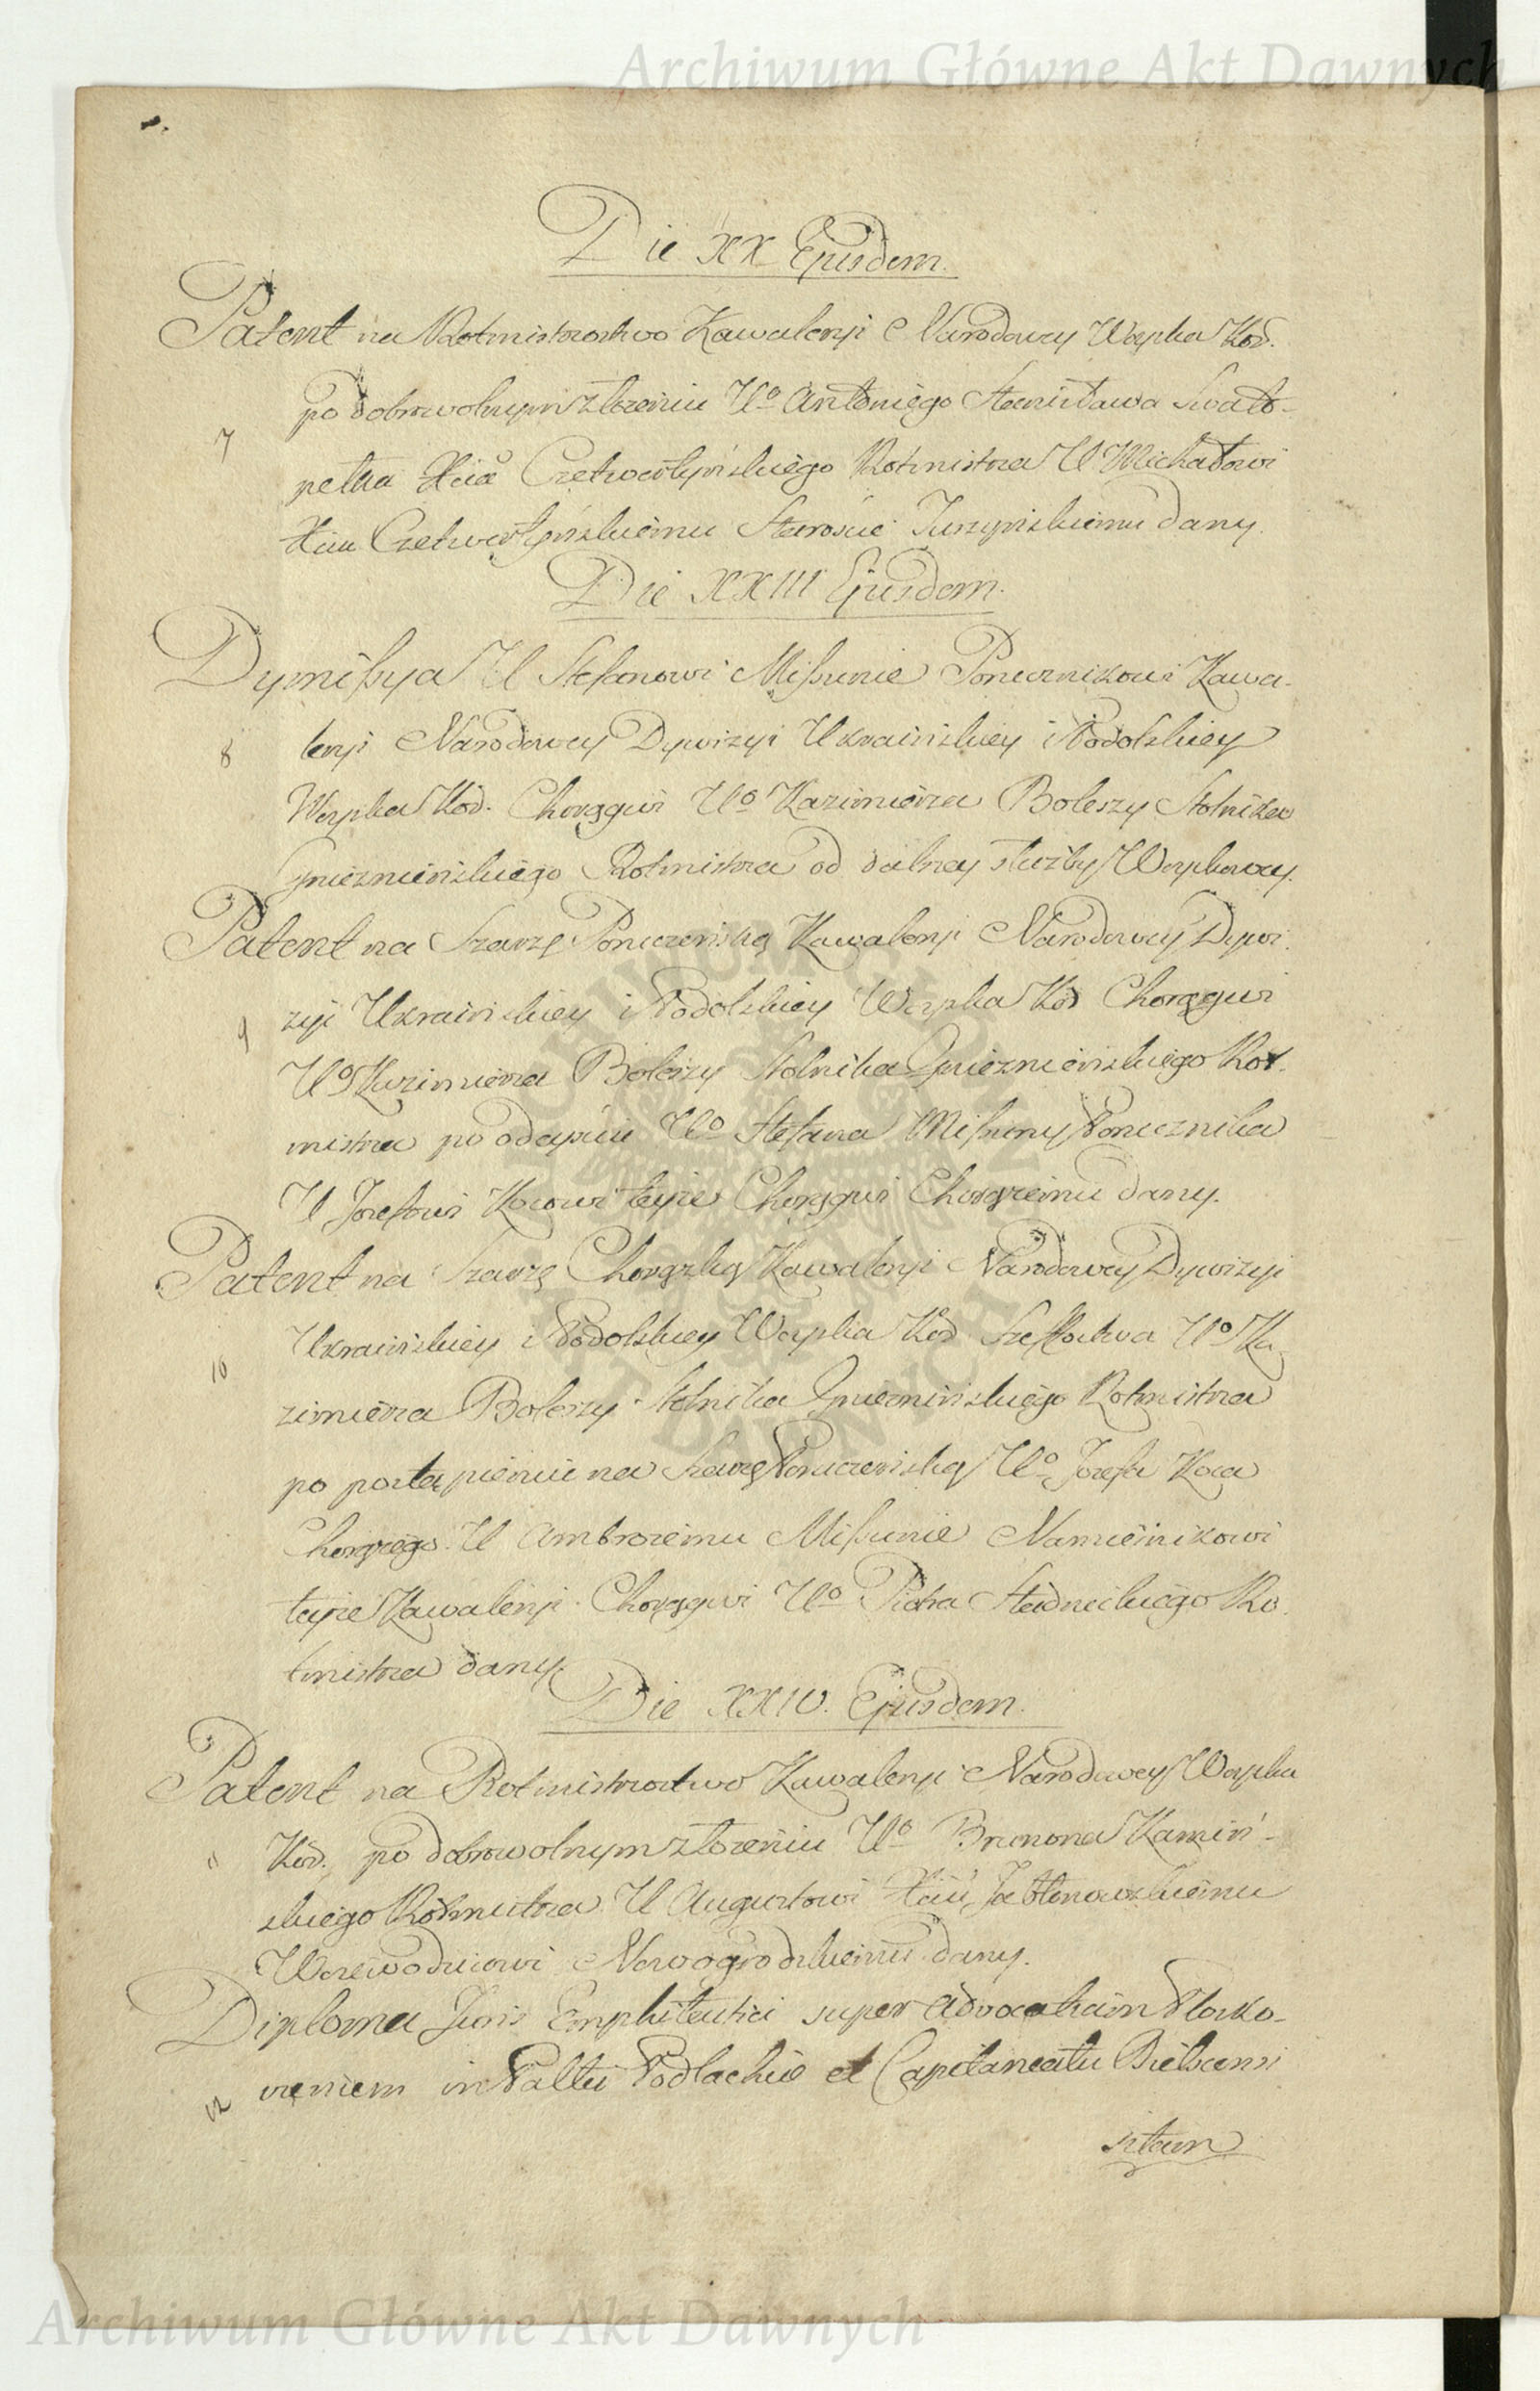 Archiwum Główne Akt Dawnych
Die XX Ejusdem.
Patent na Rotmistrzostwo Kawaleryi Narodowey Woyska Kor.
po dobrowolnym złożeniu Uo Antoniego Stanisława Swato-
7
pełka Xcia Czetwertyńskiego Rotmistrza U Michałowi
Xciu Czetwertyńskiemu Staroscie dany.
Die XXIII Ejusdem.
Dymißya U Stefanowi Mißunie Porucznikowi Kawa-
8
leryi Narodowey Dywizyi Ukrainskiey i Podolskiey
Woyska Kor. Chorągwi Uo Kazimierza Boleszy Stolnika
Gnieznienskiego Rotmistrza od dalszey służby Woyskowey.
Patent na Szarżę Poruczenską Kawaleryi Narodowey Dywi-
9
zyi Ukrainskiey i Podolskiey Woyska Kor Chorągwi
Uo Kazimierza Boleszy Stolnika Gnieznienskiego Rot-
mistrza po odeyściu Uo Stefana Mißuny Porucznika
U Jozefowi Kocowi teyże Chorągwi Chorążemu dany.
Patent na Szarżę Chorąską Kawaleryi Narodowey Dywizyi
10
Ukrainskiey i Podolskiey Woyska Kor Szeffostwa Uo Ka-
zimierza Boleszy Stolnika Gnieznińskiego Rotmistrza
po postąpieniu na Szarżę Poruczenską Uo Jozefa Koca
Chorążego U Ambrozemu Mißunie Namieśnikowi
teyże Kawaleryi Chorągwi Uo Piotra Stadnickiego Ro-
tmistrza dany.
Die XXIV. Ejusdem.
Patent na Rotmistrzostwo Kawaleryi Narodowey Woyska
11
Kor. po dobrowolnym złożeniu Uo Brunona Kamiń-
skiego Rotmistrza U Augustowi Xciu Jabłonowskiemu
Woiewodzicowi Nowogrodzkiemu dany.
Diploma Juris Emphiteutici super Advocatiam Ploxko-
12
viensem in Pallu Podlachie et Capitaneatu Bielscensi
sitam
Archiwum Główne Akt Dawnych